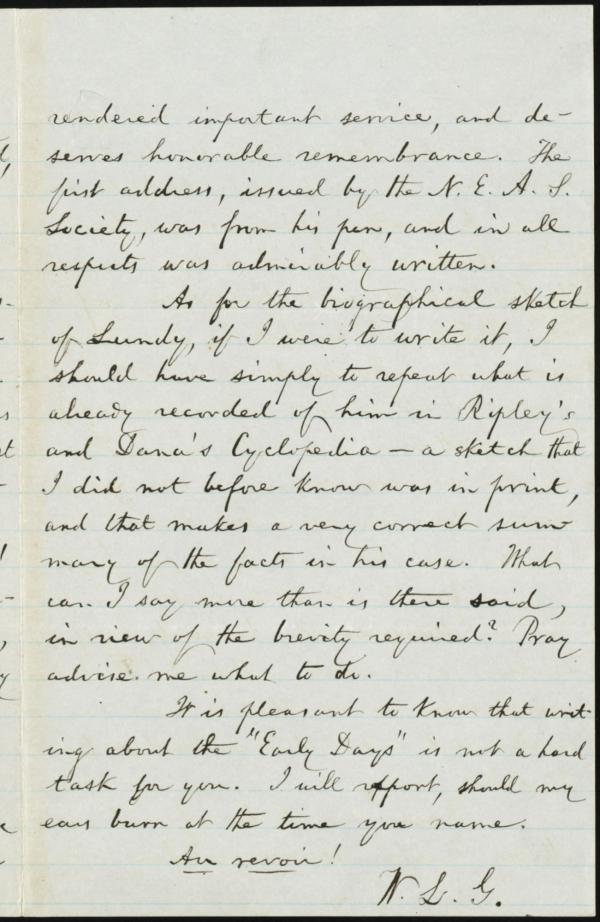 rendered important service, and de-
serves honorable remembrance. The
first address, issued by the N. E. A. S.
Society, was from his pen, and in all
respects was admirably written.
As for the biographical sketch
of Lundy, if I were to write it, I
should have simply to repeat what is
already recorded of him in Ripley's
and Dana's Cyclopedia — a sketch that
I did not before know was in print,
and that makes a very correct sum-
mary of the facts in his case. What
can I say more than is there said,
in view of the brevity required? Pray
advise me what to do.
It is pleasant to know that writ-
ing about the "Early Days" is not a hard
task for you. I will report, should my
ears burn at the time you name.
Au revoir!
W. L. G.